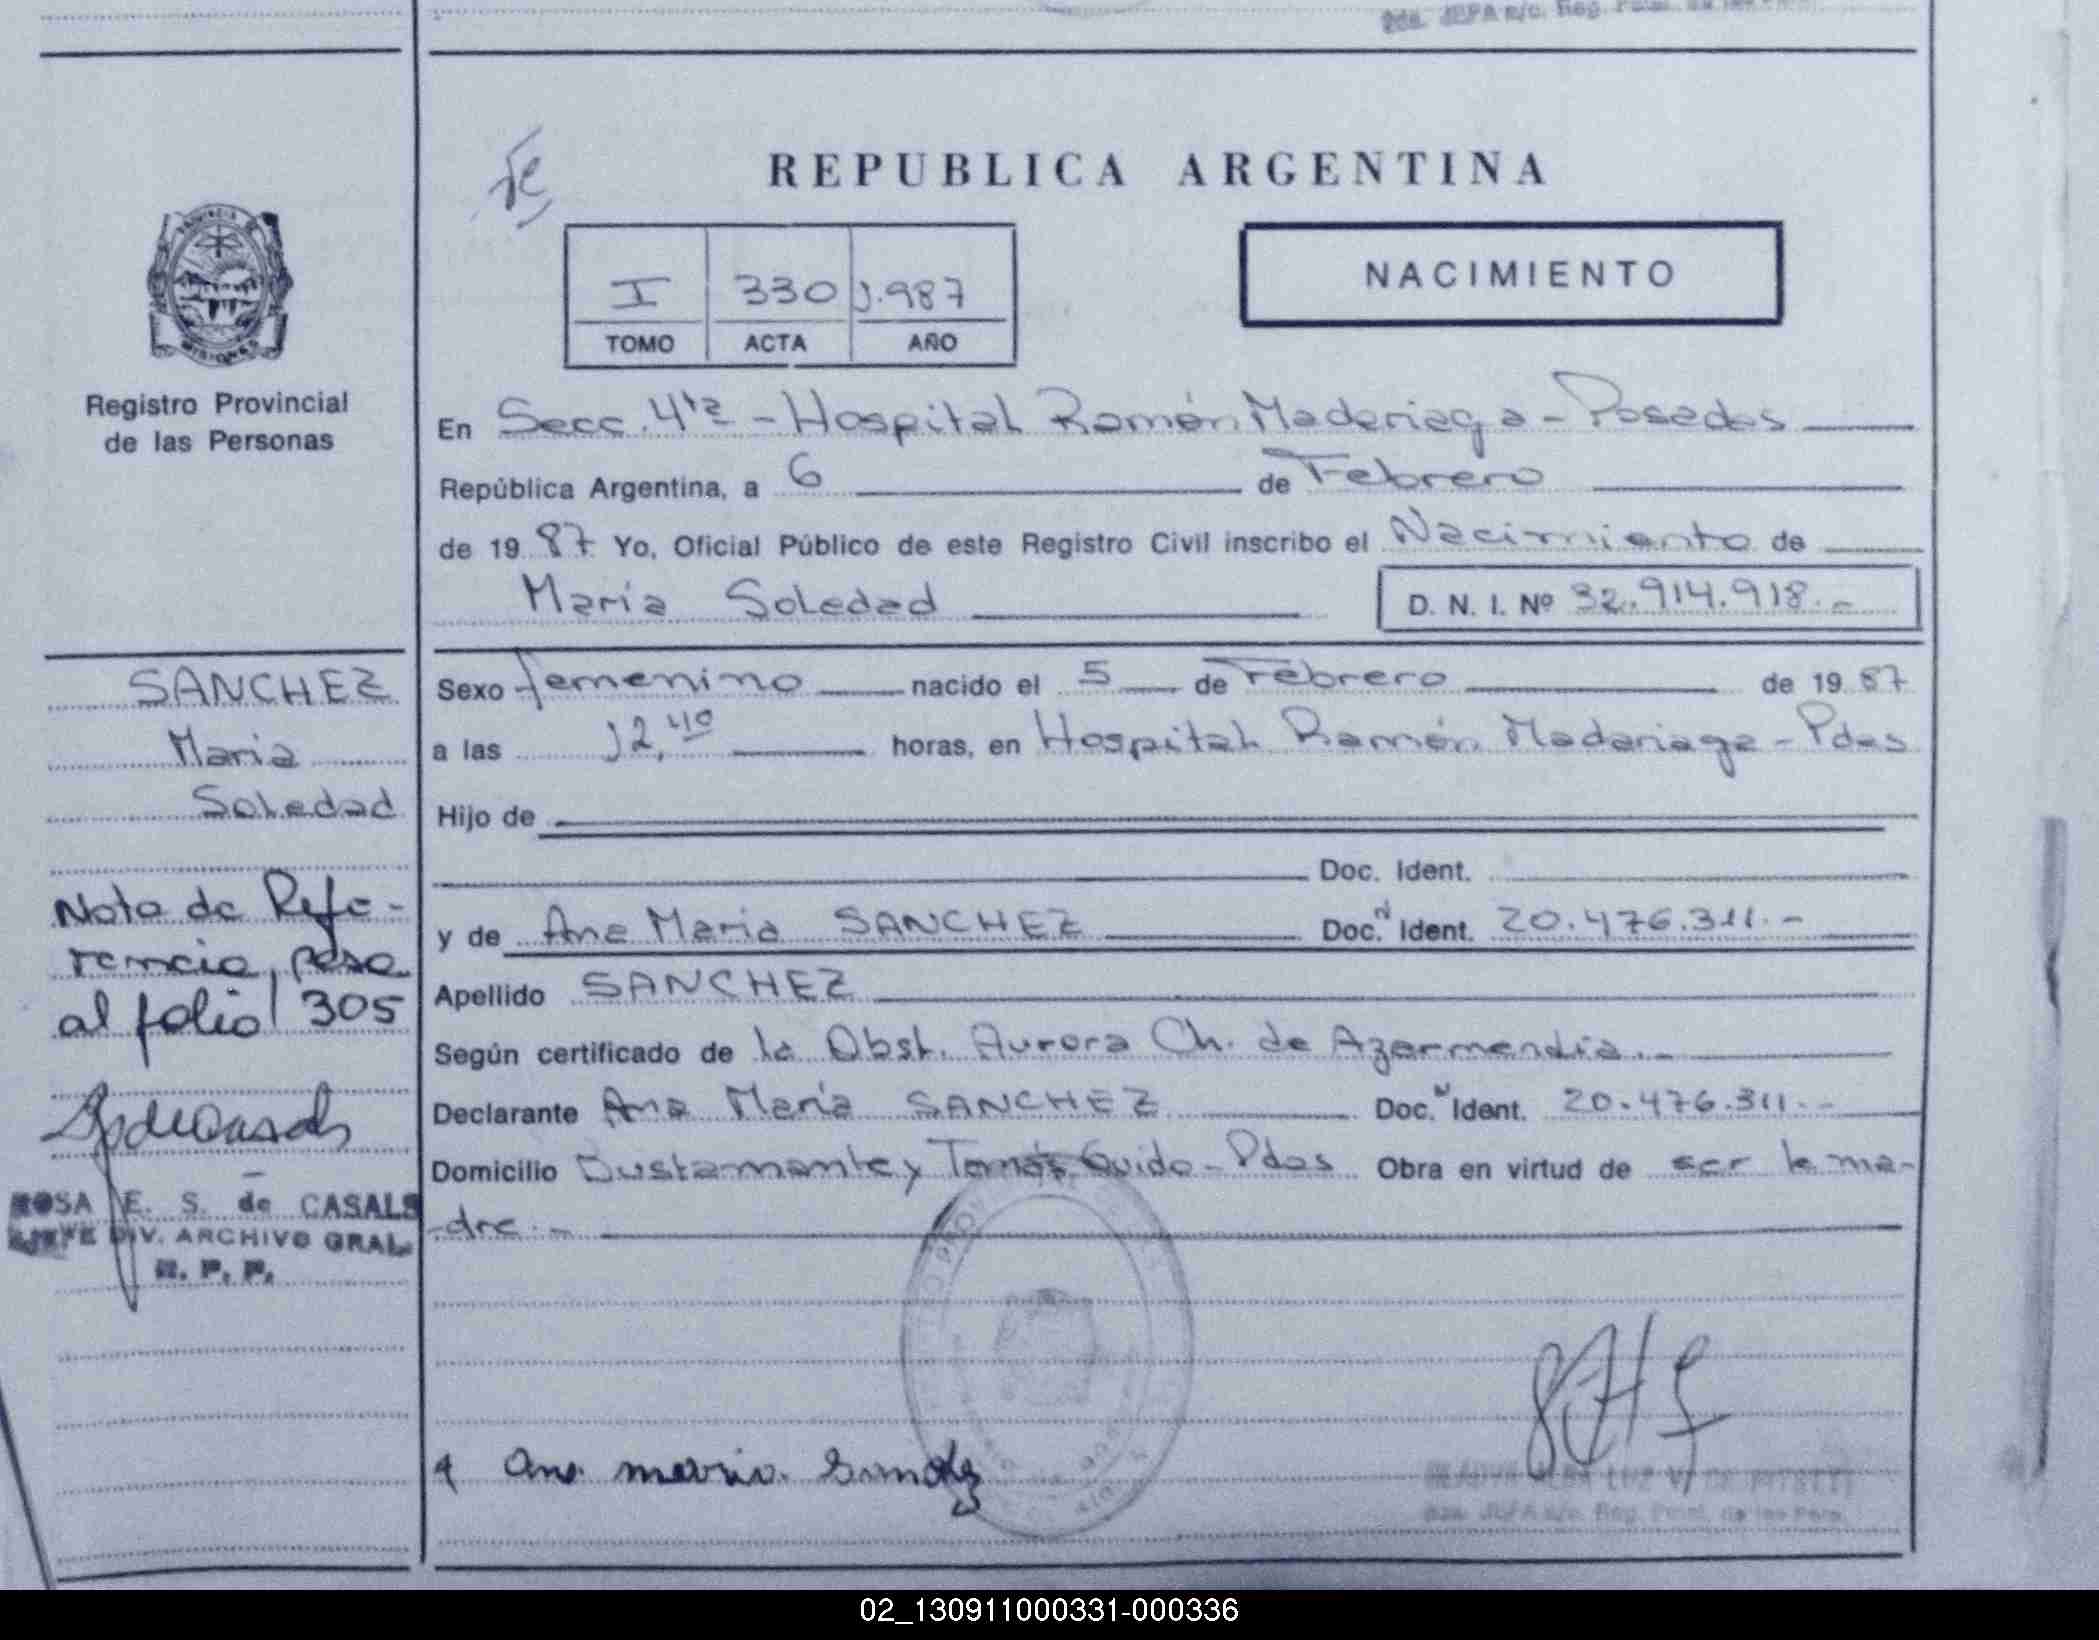 2da. JEFA a/c. Reg.
REPUBLICA ARGENTINA
I 330 1.987
TOMO ACTA AÑO
NACIMIENTO
PROVINCIA DE
MISIONES
Registro Provincial
de las Personas
En Secc. 4ta - Hospital Ramón Madariaga - Posadas
República Argentina, a 6 de Febrero
de 19 87 Yo, Oficial Público de este Registro Civil inscribo el Nacimiento de
María Soledad D. N. I. Nº 32.914.918.-
SANCHEZ
Maria
Soledad
Nota de Refe-
rencia, pasa
al folio 305
ROSA E. S. de CASALS
JEFE DIV. ARCHIVO GRAL.
R. P. P.
Sexo femenino nacido el 5 de Febrero de 19 87
a las 12,40 horas, en Hospital Ramón Madariaga - Pdas
Hijo de
Doc. Ident.
y de Ana Maria SANCHEZ Doc. N Ident. 20.476.311.-
Apellido SANCHEZ
Según certificado de la Obst. Aurora Ch. de Azarmendia.-
Declarante Ana María SANCHEZ Doc. N Ident. 20.476.311.-
Domicilio Bustamante y Tomás Guido - Pdas Obra en virtud de ser la ma-
-dre.-
Ana maria Sanchez
LUZ V. DE
2da. JEFA a/c. Reg. Pcial. de las Pers.
02_130911000331-000336